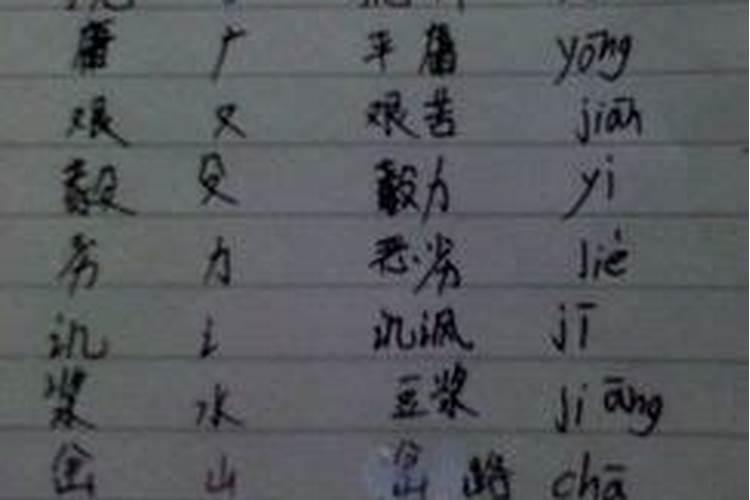 庸 广 平庸 yōng
艰 又 艰苦 jiān
毅 殳 毅力 yì
劣 力 恶劣 liè
讥 讠 讥讽 jī
浆 水 豆浆 jiāng
岔 山 岔路 chà